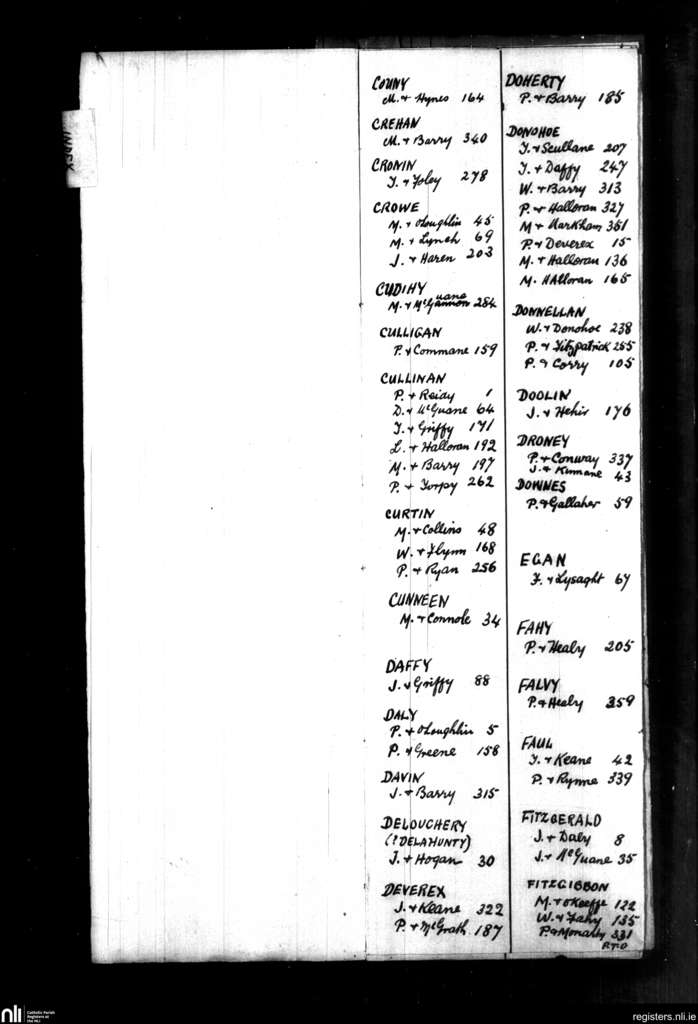 INDEX
COUNY
M. + Hynes 164
CREHAN
M. + Barry 340
CRONIN
T. + Foley 278
CROWE
M. + O'Loughlin 45
M. + Lynch 69
J. + Haren 203
CUDIHY
uane
M. + McGannon 284
CULLIGAN
P. + Commane 159
CULLINAN
P. + Reidy 1
D. + McGuane 64
T. + Griffy 171
L. + Halloran 192
M. + Barry 197
P. + Torpy 262
CURTIN
M. + Collins 48
W. + Flynn 168
P. + Ryan 256
CUNNEEN
M. + Connole 34
DAFFY
J. + Griffy 88
DALY
P. + O'Loughlin 5
P. + Greene 158
DAVIN
J. + Barry 315
DELOUCHERY
(? DELAHUNTY)
T. + Hogan 30
DEVEREX
J. + Keane 322
P. + McGrath 187
DOHERTY
P. + Barry 185
DONOHOE
T. + Scullane 207
T. + Daffy 247
W. + Barry 313
P. + Halloran 327
M + Markham 351
P. + Deverex 15
M. + Halloran 136
M. HAlloran 165
DONNELLAN
W. + Donohoe 238
P. + Fitzpatrick 255
P. + Corry 105
DOOLIN
J. + Hehir 176
DRONEY
P. + Conway 337
J. + Kinnane 43
DOWNES
P. + Gallaher 59
EGAN
F. + Lysaght 67
FAHY
P. + Healy 205
FALVY
P. + Healy 259
FAUL
T. + Keane 42
P. + Rynne 339
FITZGERALD
J. + Daly 8
J. + McGuane 35
FITZGIBBON
M. + O'Keeffe 122
W. + Fahy 135
P. + Moriarty 331
P.T.O
nli
Catholic Parish
Registers at
the NLI
registers.nli.ie